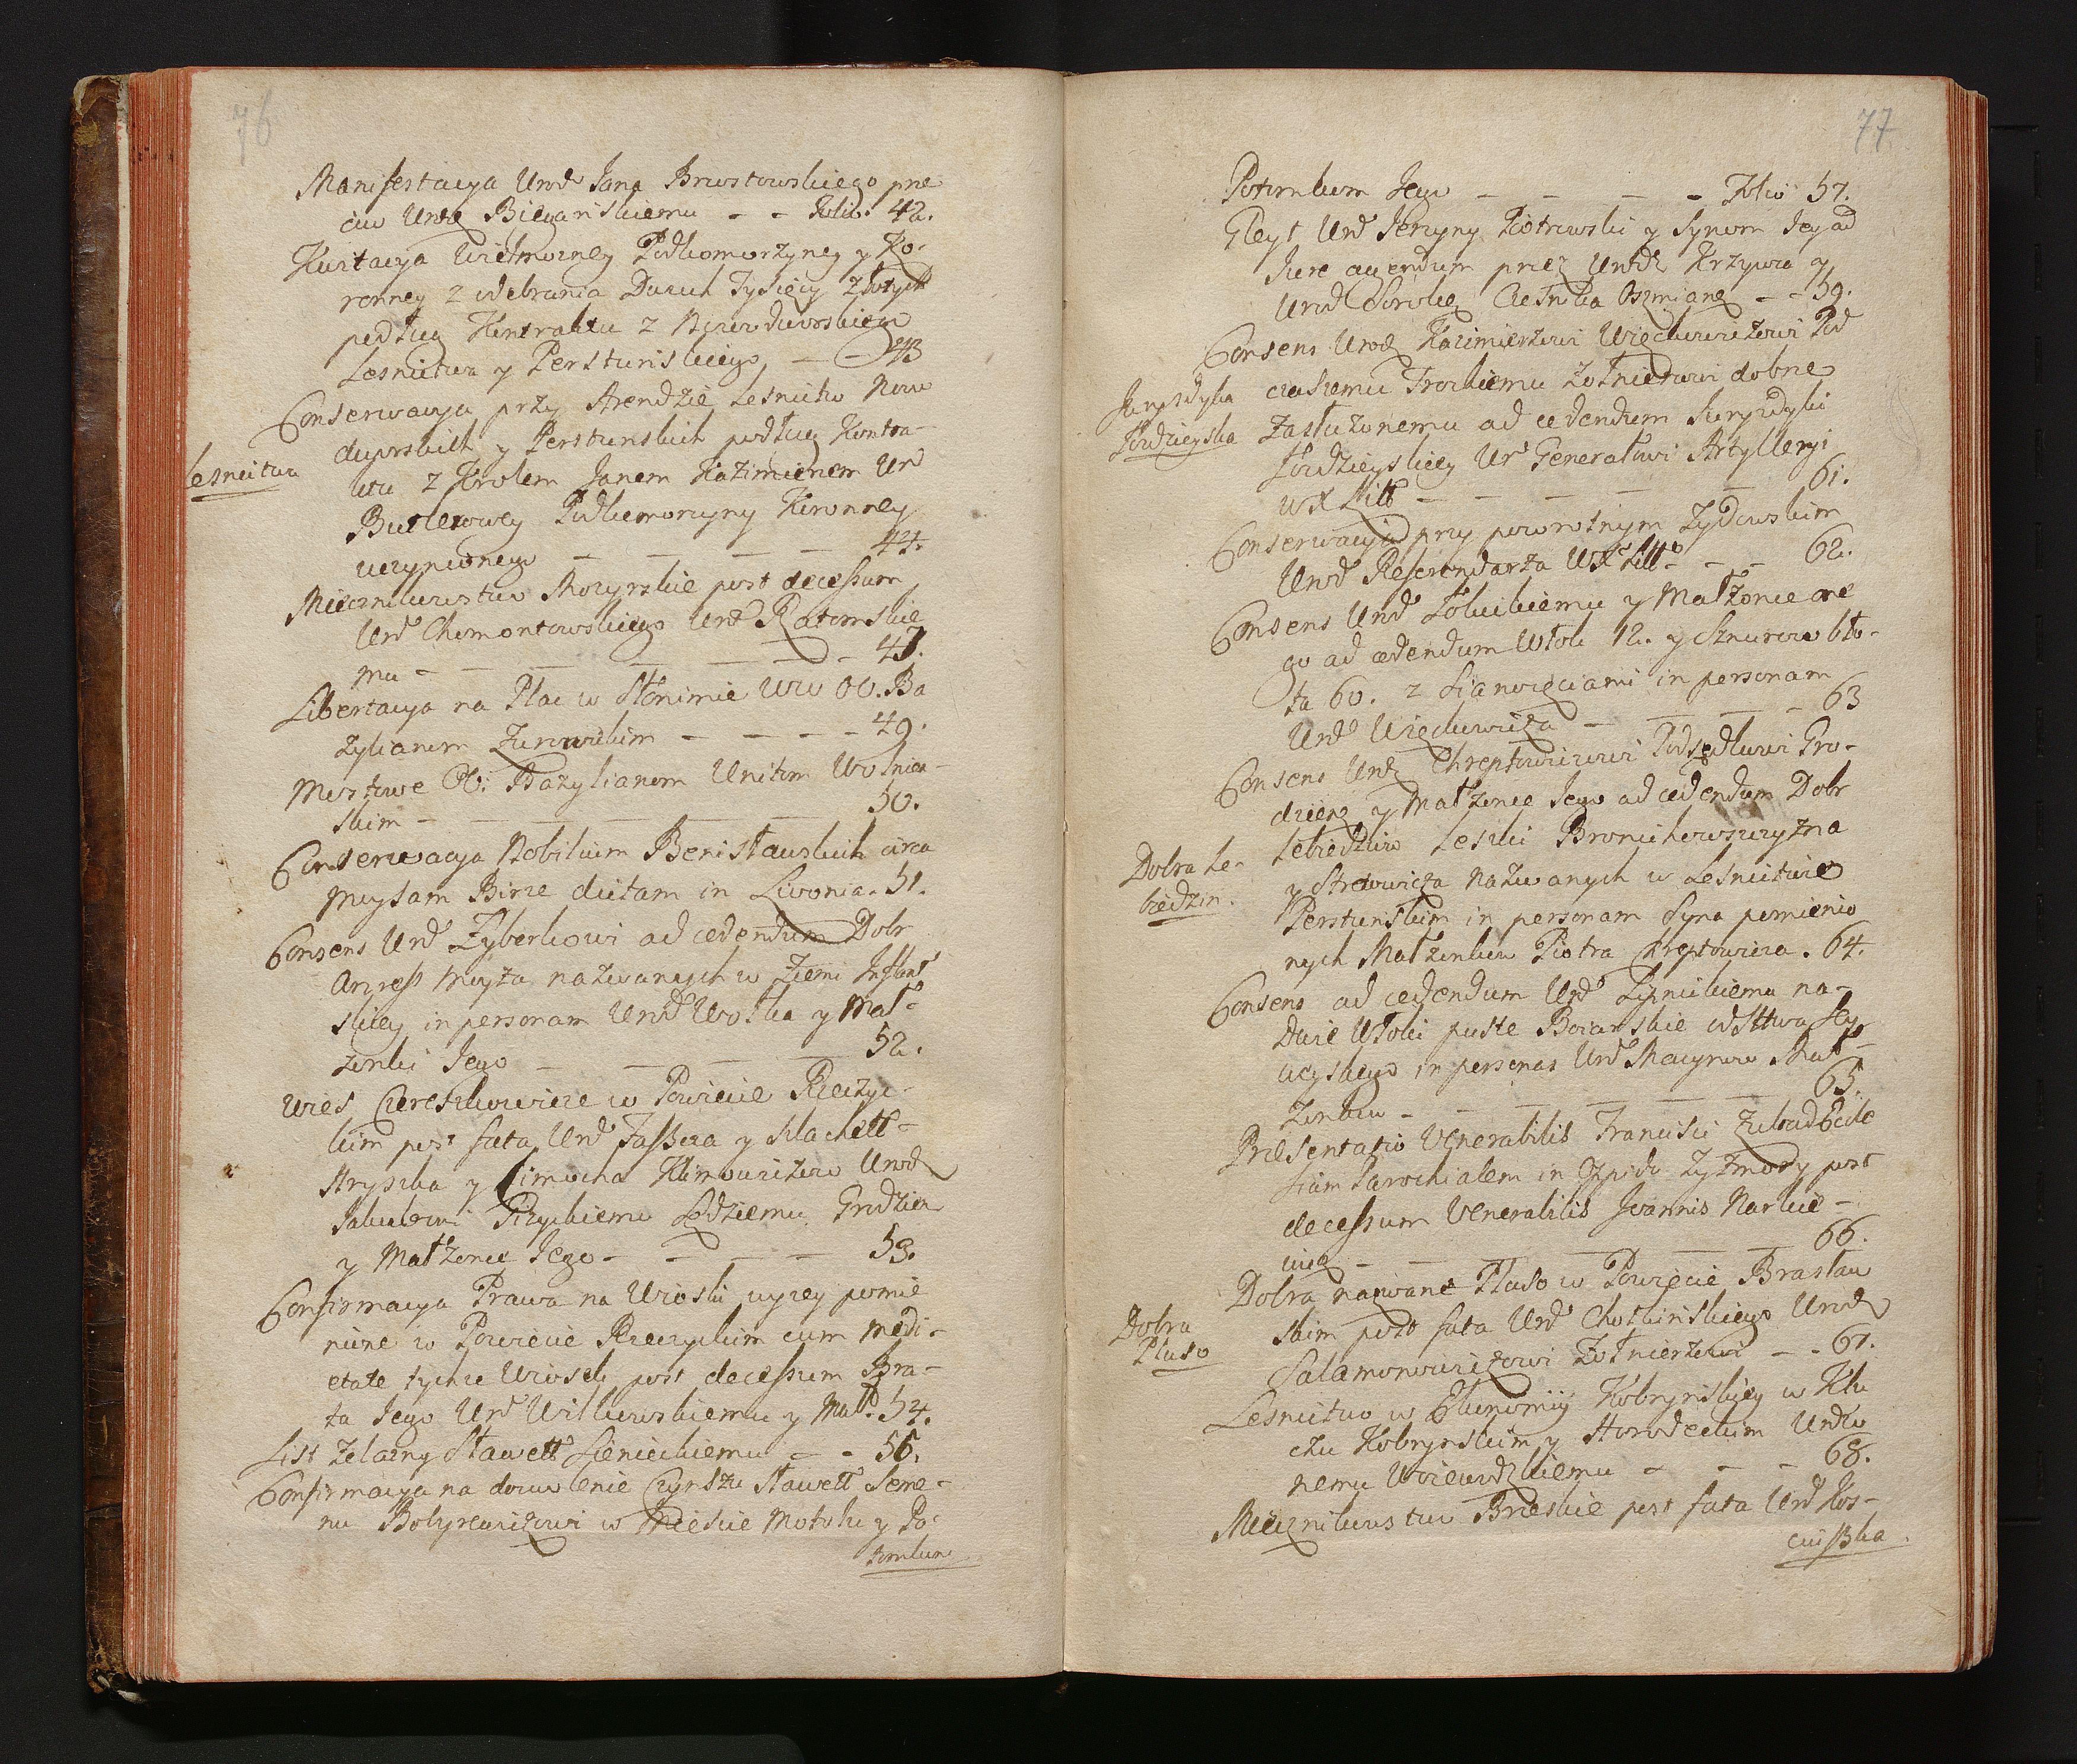 76
Manifestacya Urod Jana Brwstowskiego prze
ciw Urodz Bieganskiemu - - Folio. 42.
Kwitacya Wielmozney Podkomorzyney y Ko-
ronney z odebrania Dwuch Tysięcy Złotych
podług Kontraktu z Nowodworskiego
Lesnictwa y Perstunskiego - - 43
Conserwacya przy Arendzie Lesnictw Nowo
dworskich y Perstunskich podług Kontra-
Lesnictwa
ktu z Krolem Janem Kazimierzem Ur
Butlerowey Podkomorzyny Koronney
uczynionego - - - - 44.
Miecznikowstwo Mozyrskie post decessum
Urod Chomontowskiego Urod Ratomskie
mu - - - - - - 47.
Libertacya na Plac w Słonimie WW OO. Ba
zylianom Zurowickim - - - - 49.
Mostowe OO: Bazylianom Unitom Wolnien-
skim - - - - - 50.
Conserwacya Nobilium Benisławskich circa
Muysam Birze dictam in Livonia. 51.
Consens Urod Zyberkowi ad cedendum Dobr
Anress Muyza nazwanych w Ziemi Inflant
skiey in personam Urod Wolka y Mał-
zonki Jego - - - 52.
Wies Czereszkowicze w Powiecie Rzeczyc-
kim post fata Urod Fasscza y Szlachett-
Hryszka y Cimocha Klimowiczow Urodz
Jakubowi Przyckiemu Sędziemu Grodzkie
y Małzonce Jego - - - - 53.
Confirmacya Prawa na Wioski wyzey pomie
nione w Powiecie Rzeczyckim cum medi-
etate tychze Wiosek post decessum Bra-
ta Jego Urod Wilkowskiemu y Małż. 54.
List zelazny Sławett Sienieckiemu - - 56.
Confirmacya na dozwolenie Czynszu Sławett Seme-
nu Bobyrewiczowi w Miescie Motolu y Po-
tomkow
77
Potomkom Jego - - - - Folio 57.
Gleyt Urod Jerzyny Piotrowski y Synom Jey ad
Jure agendum przez Urodz Krzywca y
Urod Sorokę Czesnika Oszmianę - - 59.
Consens Urodz Kazimierzowi Więckowiczowi Pod
czaszemu Trockiemu Zołnierzowi dobrze
Jurysdyka
Łozdzieyska
zasłuzonemu ad cedendum Jurysdyki
Łozdzieyskiey Ur Generałowi Artylleryi
WX Litt - - - - - 61.
Conserwacya przy powrotnym Zydowskim
Urod Referendarza WX Litt - - - 62.
Consens Urod Zolwickiemu y Małzonce one
go ad cedendum Włok 12. y Sznurow bło-
ta 60. z Sianozęciami in personam
Urod Więckowicza - - - - 63
Consens Urodz Chreptowiczowi Podsędkowi Gro-
dzien y Małzonce Jego ad cedendum Dobr
Lebiedziow Leszki Bronichowszczyzna
Dobra Le-
biedzin.
y Strzowicza nazwanych w Lesnictwie
Perstunskim in personam Syna pomienio
nych Małzonkow Piotra Chreptowicza. 64.
Consens ad cedendum Urod Lipnickiemu na-
Dwie Włoki puste Boiarskie w Sttwa Sey
wieyskiego in personas Urod Macynow Mał-
zonkow - - - - - - 65.
Præsentatio Venerabilis Francisci Zuk ad Eccle
siam Parochialem in Oppido Zyzmory post
decessum Venerabilis Joannis Narkie-
wicz - - - - - 66.
Dobra nazwane Pluso w Powiecie Brasław
Dobra
Pluso
skim post fata Urod Chotkinskiego Urodz
Salamonowiczowi Zołnierzowi - - 67.
Lesnictwo w Ekonomij Kobrynskiey w Klu
czu Kobrynskim y Horodeckim Urodzo
nemu Woiewodzkiemu - - - 68.
Miecznikowstwo Brzeskie post fata Urod Kos-
ciusska